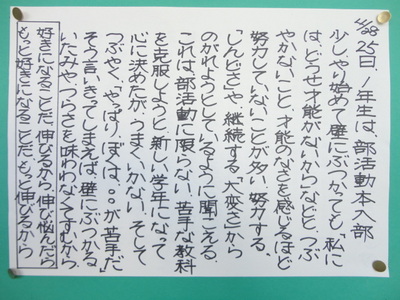 4/28
25日、1年生は、部活動本入部
少しやり始めて壁にぶつかっても、「私に
は、どうせ才能がないから」などと、つぶ
やかないこと。才能のなさを感じるほど
努力していないことが多い。努力する、
「しんどさ」や、継続する「大変さ」から
のがれようとしているように聞こえる。
これは、部活動に限らない。苦手な教科
を克服しようと新しい学年になって
心に決めたが、うまくいかない。そして
つぶやく、「やっぱり、ぼくは、○○が苦手だ」
そう言いきってしまえば、壁にぶつかる
いたみや、つらさを味わわなくてすむから。
好きになることだ、伸びるから、伸び悩んだら
もっと好きになることだ、もっと伸びるから